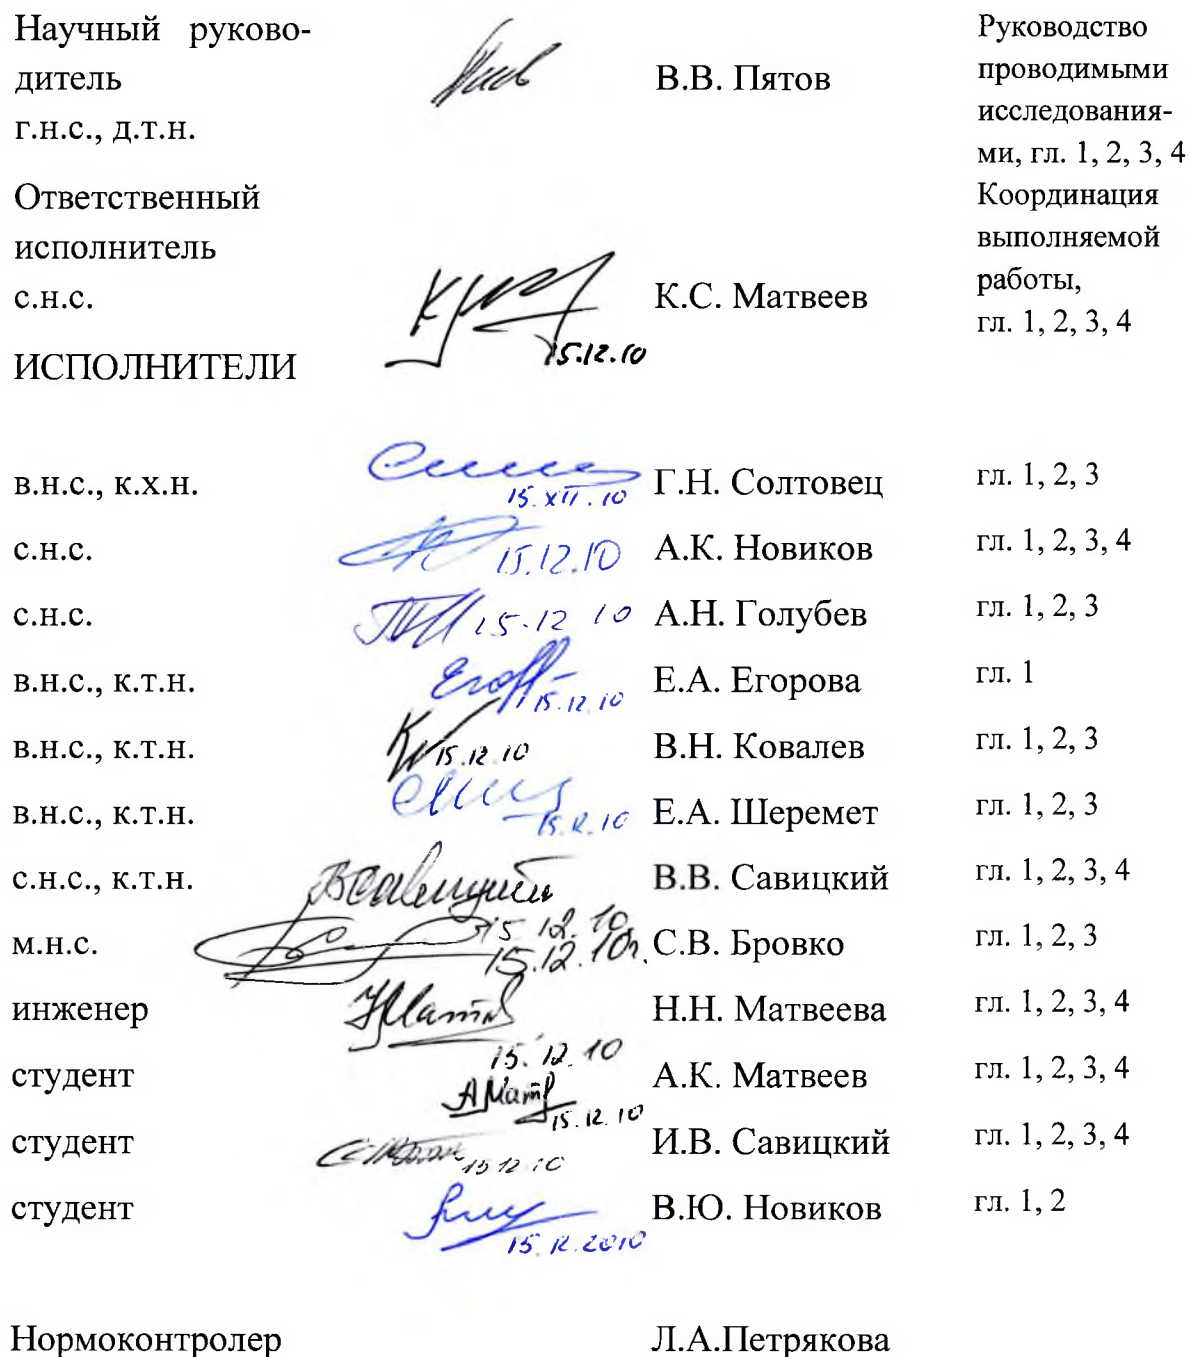 Научный руково-
дитель
г.н.с., д.т.н.
В.В. Пятов
Руководство
проводимыми
исследования-
ми, гл. 1, 2, 3, 4
Ответственный
исполнитель
с.н.с.
15.12.10
К.С. Матвеев
Координация
выполняемой
работы,
гл. 1, 2, 3, 4
ИСПОЛНИТЕЛИ
в.н.с., к.х.н. 15.XII.10 Г.Н. Солтовец гл. 1, 2, 3
с.н.с. 15.12.10 А.К. Новиков гл. 1, 2, 3, 4
с.н.с. 15.12 10 А.Н. Голубев гл. 1, 2, 3
в.н.с., к.т.н. 15.12.10 Е.А. Егорова гл. 1
в.н.с., к.т.н. 15.12.10 В.Н. Ковалев гл. 1, 2, 3
в.н.с., к.т.н. 15.12.10 Е.А. Шеремет гл. 1, 2, 3
с.н.с., к.т.н. ВСавицкий 15.12.10 В.В. Савицкий гл. 1, 2, 3, 4
м.н.с. 15.12.10г. С.В. Бровко гл. 1, 2, 3
инженер 15.12.10 Н.Н. Матвеева гл. 1, 2, 3, 4
студент 15.12.10 А.К. Матвеев гл. 1, 2, 3, 4
студент 15 12 10 И.В. Савицкий гл. 1, 2, 3, 4
студент 15.12.2010 В.Ю. Новиков гл. 1, 2
Нормоконтролер Л.А.Петрякова